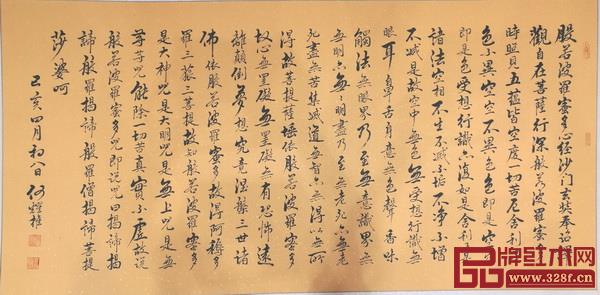 般若波羅蜜多心經沙門玄奘奉詔譯
觀自在菩薩行深般若波羅蜜多
時照見五蘊皆空度一切苦厄舍利子
色不異空空不異色色即是空空
即是色受想行識亦復如是舍利子是
諸法空相不生不滅不垢不淨不增
不減是故空中無色無受想行識無
眼耳鼻舌身意無色聲香味
觸法無眼界乃至無意識界無
無明亦無無明盡乃至無老死亦無老
死盡無苦集滅道無智亦無得以無所
得故菩提薩埵依般若波羅蜜多
故心無罣礙無罣礙故無有恐怖遠
離顛倒夢想究竟涅槃三世諸
佛依般若波羅蜜多故得阿耨多
羅三藐三菩提故知般若波羅蜜多
是大神咒是大明咒是無上咒是無
等等咒能除一切苦真實不虛故說
般若波羅蜜多咒即說咒曰揭諦揭
諦般羅揭諦般羅僧揭諦菩提
莎婆呵
己亥四月初八日何
品牌红木网
www.328f.cn
www.328f.com